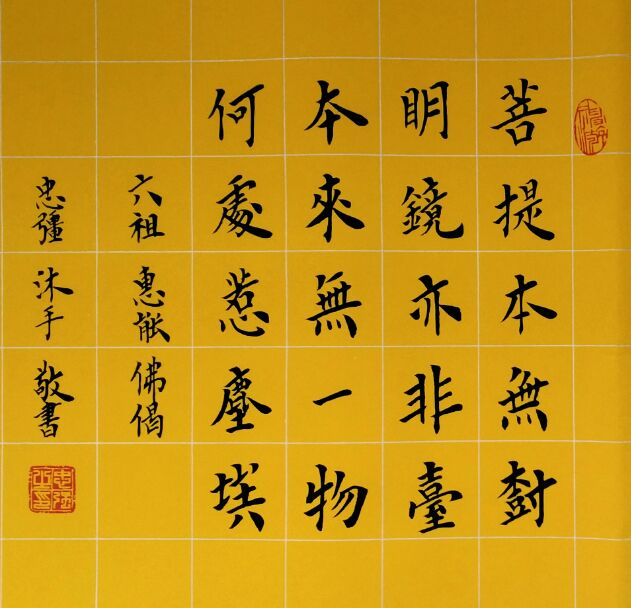 菩提本無樹
明鏡亦非臺
本來無一物
何處惹塵埃
六祖惠能佛偈
忠疆沐手敬書